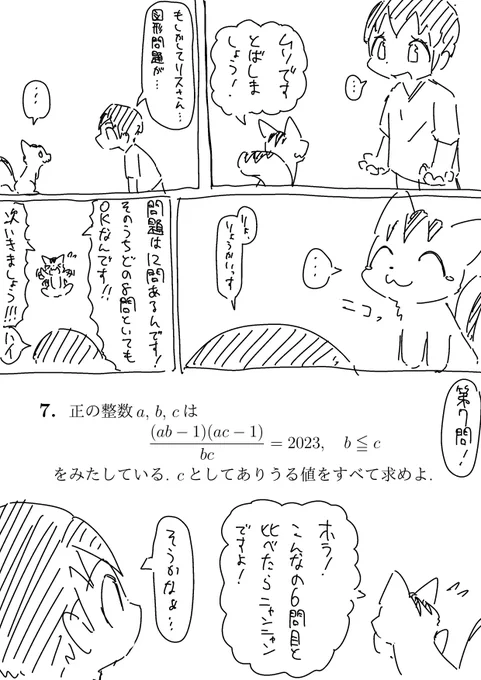 ムリです
とばしま
しょう!
…
もしかしてリスさん…
図形問題が…
…
…
ニコッ
りょ、
りょうかいっす
問題は12問あるんです!
そのうちどの8問といても
OKなんです!!
次いきましょう!!!
ハイ
第7問!
7. 正の整数 a, b, c は
(ab − 1)(ac − 1)/bc = 2023, b ≦ c
をみたしている. c としてありうる値をすべて求めよ.
ホラ!
こんなの6問目と
比べたらニャンニャン
ですよ!
そうかなぁ…